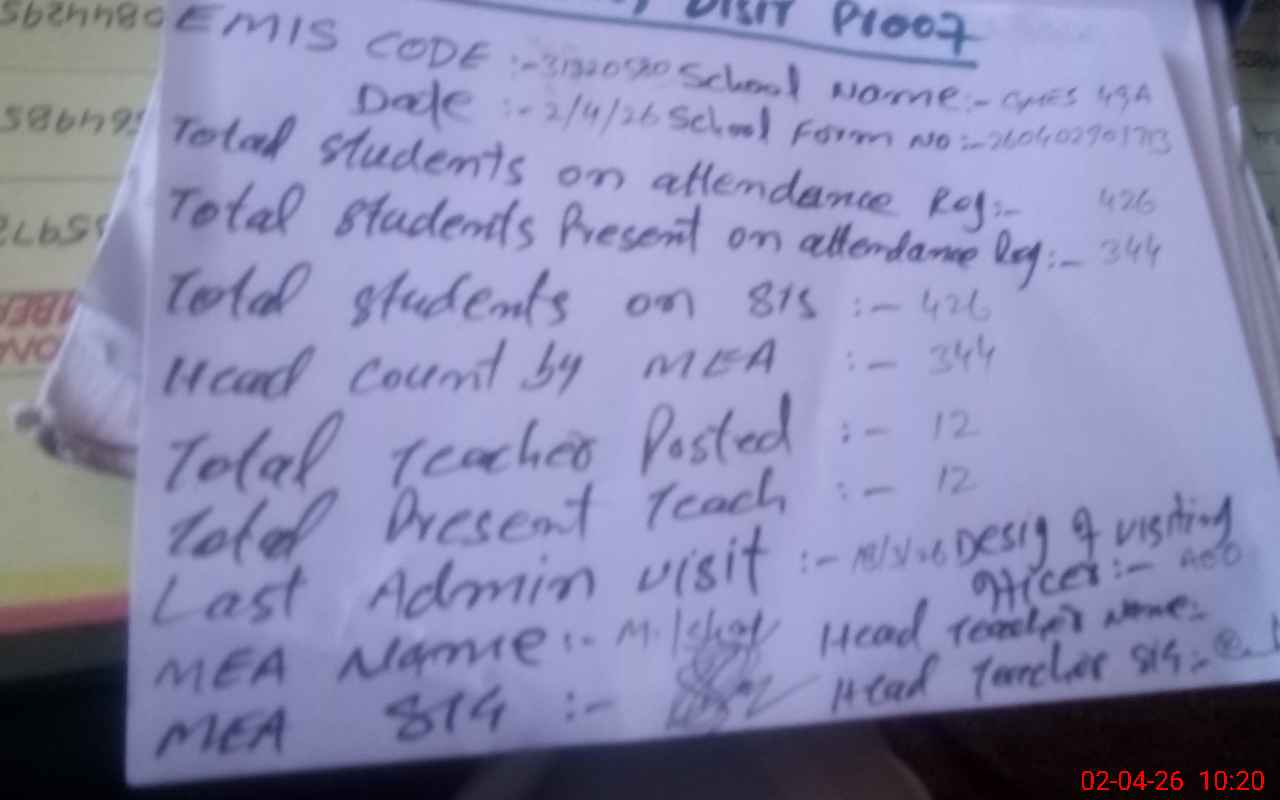 VISIT Proof
EMIS CODE :- 31320580 School Name:- GMES 49A
Date :- 2/4/26 School Form No :- 260402901713
Total students on attendance Reg:- 426
Total students Present on attendance Reg:- 344
Total students on SIS :- 426
Head count by MEA :- 344
Total Teacher Posted :- 12
Total Present Teach :- 12
Last Admin visit :- Desig of visiting
officer:- AEO
MEA Name:- M. Head Teacher Name:-
MEA SIG :- Head Teacher SIG:-
02-04-26 10:20